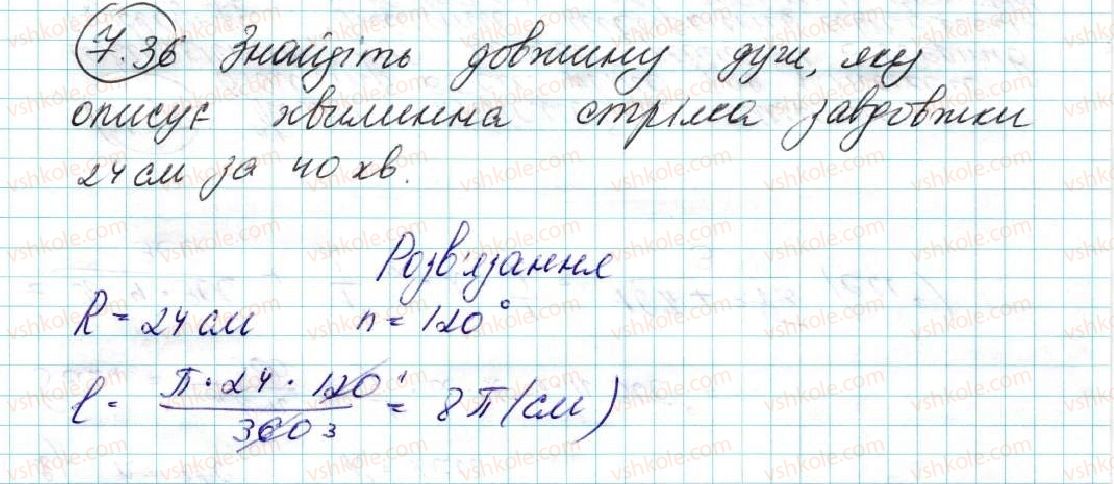 7.36 Знайдіть довжину дуги, яку
описує хвилинна стрілка завдовжки
24 см за 40 хв.
Розв'язання
R = 24 см n = 120°
l = π · 24 · 120 1 / 360 3 = 8π (см)